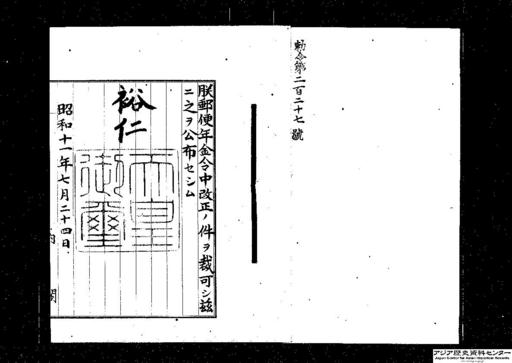 勅令第二百二十七號
朕郵便年金令中改正ノ件ヲ裁可シ茲
ニ之ヲ公布セシム
裕仁
天皇御璽
昭和十一年七月二十四日
内閣
アジア歴史資料センター
Japan Center for Asian Historical Records